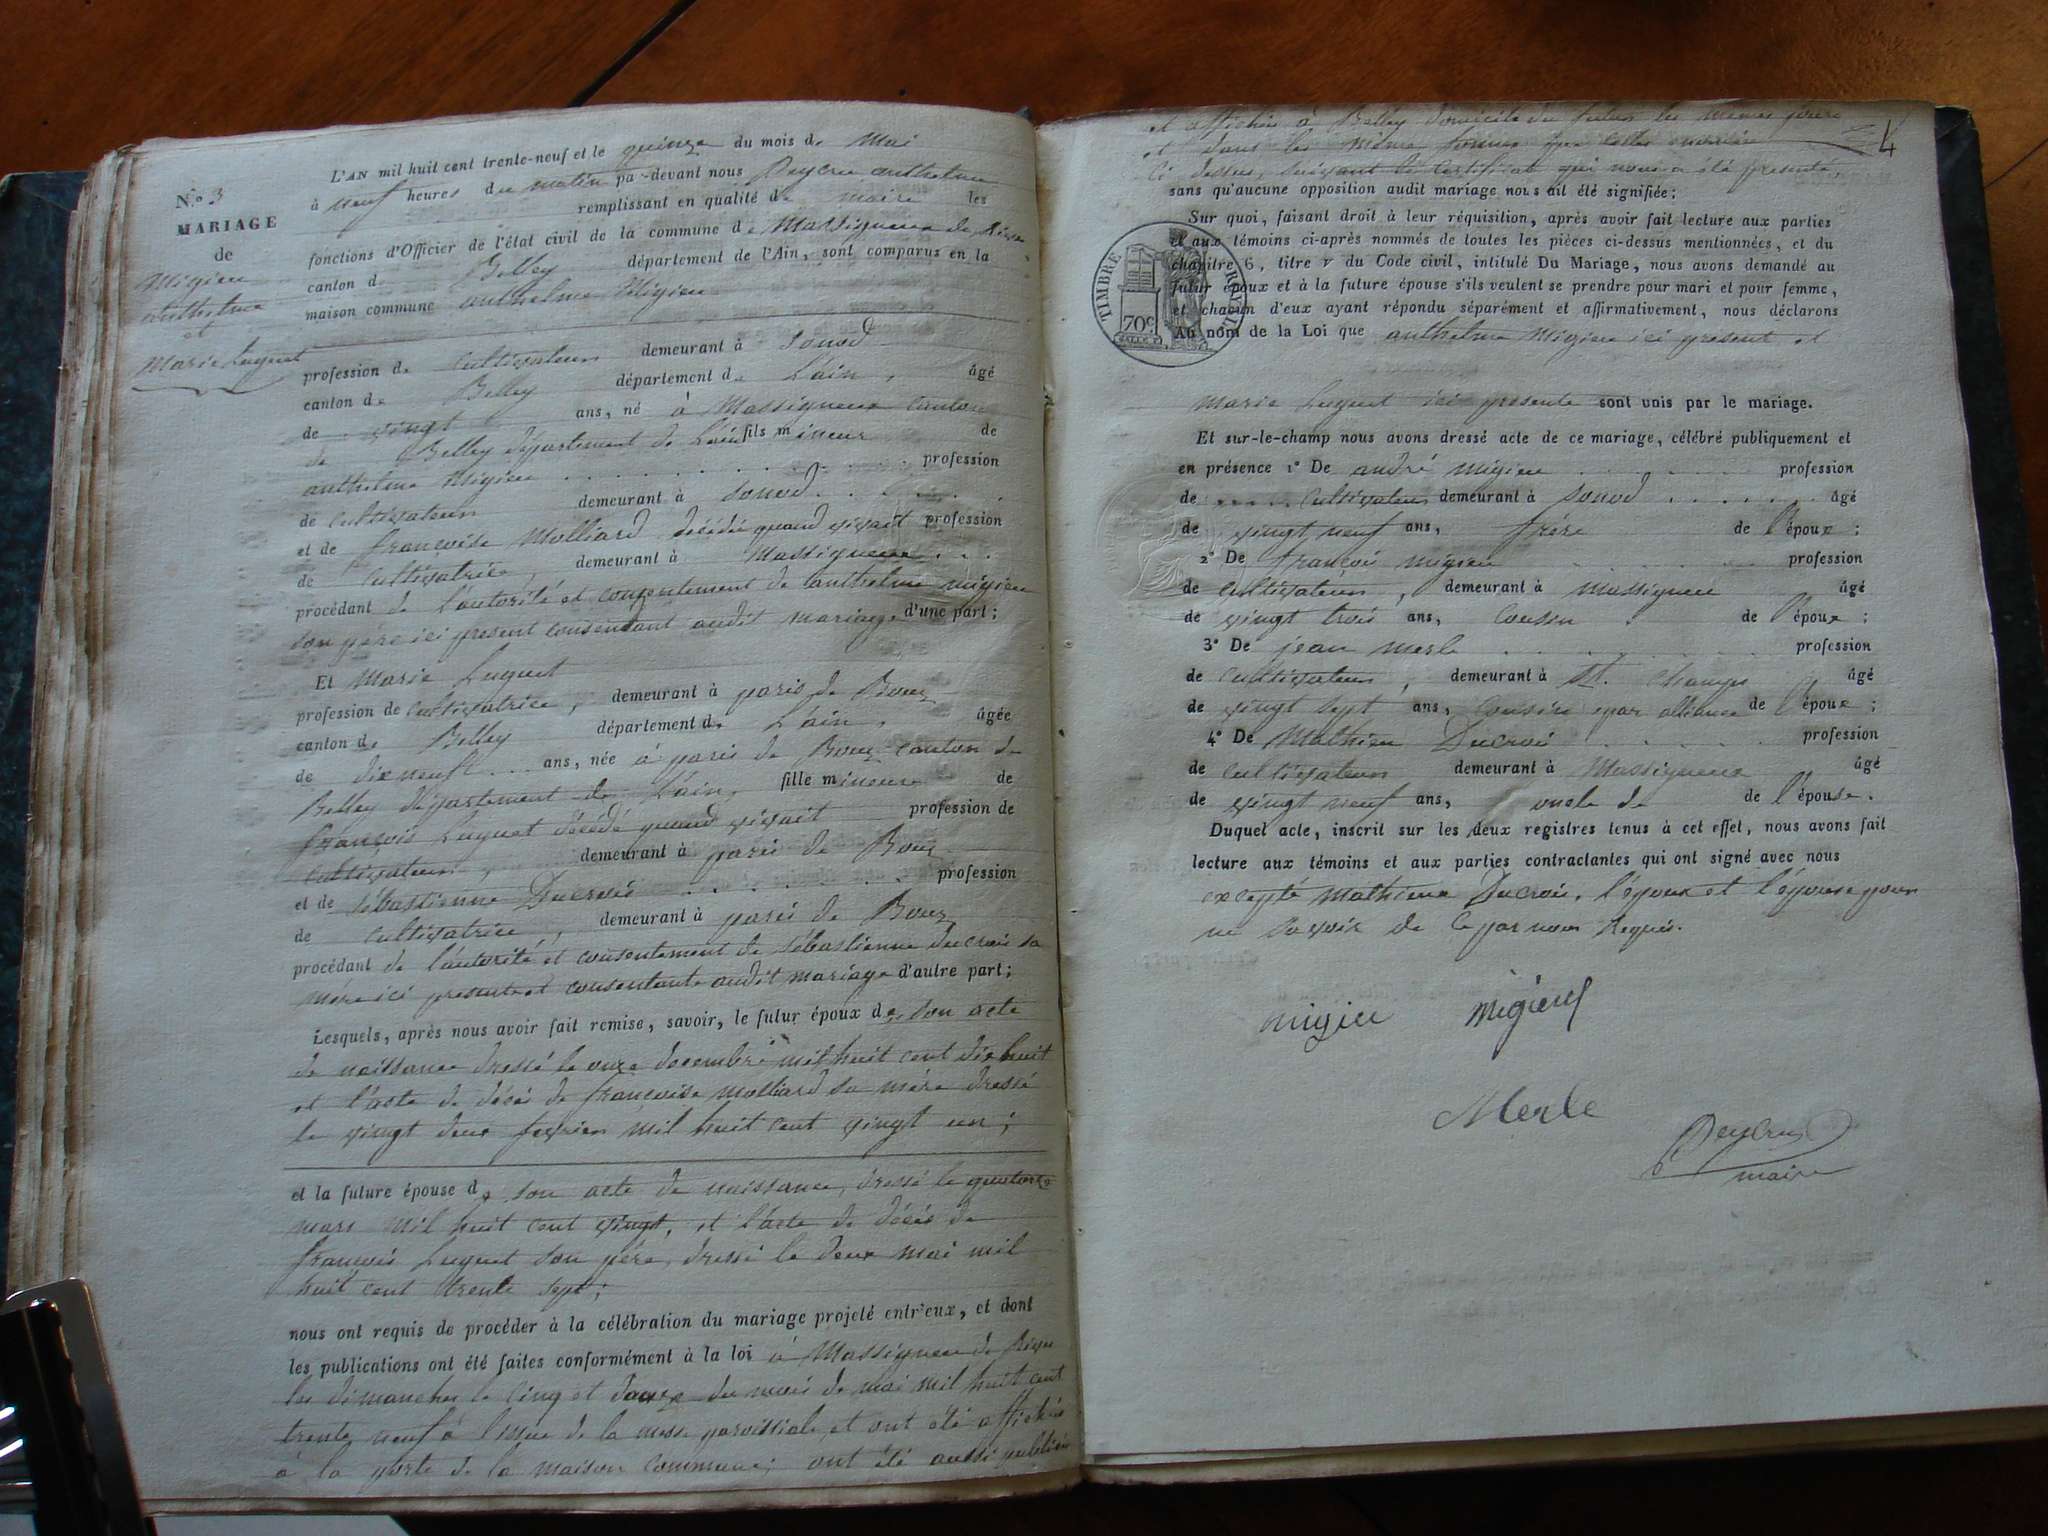 N.° 3
MARIAGE
de
Migieu
anthelme
et
Marie Luquet
L'AN mil huit cent trente-neuf et le quinze du mois de Mai
à neuf heures du matin par-devant nous Peycru anthelme
remplissant en qualité de maire les
fonctions d'Officier de l'état civil de la commune de Massigneux de Rives
canton de Belley département de l'Ain, sont comparus en la
maison commune anthelme Migieu
profession de Cultivateur demeurant à Sonod
canton de Belley département de L'ain, âgé
de vingt ans, né à Massigneux canton
de Belley département de L'ain fils mineur de
anthelme Migieu profession
de Cultivateur demeurant à Sonod
et de françoise Molliard décédée quand vivait profession
de Cultivatrice, demeurant à Massigneux
procédant de l'autorité et consentement de anthelme migieu
son père ici présent consendant audit mariage d'une part;
Et Marie Luquet
profession de Cultivatrice, demeurant à parès de Bouz
canton de Belley département de L'ain, âgée
de dix neuf ans, née à parès de Bouz canton de
Belley département de L'ain, fille mineure de
françois Luquet décédé quand vivait profession de
Cultivateur, demeurant à parès de Bouz
et de sébastienne Ducrois profession
de Cultivatrice, demeurant à parès de Bouz
procédant de l'autorité et consentement de sébastienne ducrois sa
mère ici présente et consentante audit mariage d'autre part;
Lesquels, après nous avoir fait remise, savoir, le futur époux de son acte
de naissance dressé le onze decembre mil huit cent dix huit
et l'acte de décés de françoise molliard sa mère dressé
le vingt deux fevrier mil huit cent vingt un;
et la future épouse de son acte de naissance, dressé le quatorze
mars mil huit cent vingt, et l'acte de décés de
françois Luquet son père, dressé le deux mai mil
huit cent trente sept;
nous ont requis de procéder à la célébration du mariage projeté entr'eux, et dont
les publications ont été faites conformément à la loi à Massigneu de Rives
les dimanches le cinq et douze du mois de mai mil huit cent
trente neuf à l'issue de la messe paroissiale et ont été affichés
à la porte de la maison commune; ont été aussi publiés
4
et affichés à Belley domicile du futur les mêmes jours
et dans les même formes que celles
ci dessus, suivant le certificat qui nous a été présenté,
sans qu'aucune opposition audit mariage nous ait été signifiée;
Sur quoi, faisant droit à leur réquisition, après avoir fait lecture aux parties
et aux témoins ci-après nommés de toutes les pièces ci-dessus mentionnées, et du
chapitre 6, titre v du Code civil, intitulé Du Mariage, nous avons demandé au
futur époux et à la future épouse s'ils veulent se prendre pour mari et pour femme,
et chacun d'eux ayant répondu séparément et affirmativement, nous déclarons
Au nom de la Loi que anthelme Migieu ici présent et
TIMBRE ROYAL
70c
Marie Luquet ici présente sont unis par le mariage.
Et sur-le-champ nous avons dressé acte de ce mariage, célébré publiquement et
en présence 1° De andré migieu profession
de Cultivateur demeurant à Sonod âgé
de vingt neuf ans, frère de l'époux;
2° De françois migieu profession
de Cultivateur, demeurant à massigneu âgé
de vingt trois ans, Cousin de l'époux;
3° De jean merle profession
de Cultivateur, demeurant à St. Champs âgé
de vingt sept ans, Cousin par alliance de l'époux;
4° De Mathieu Ducrois profession
de Cultivateur demeurant à Massigneux âgé
de vingt neuf ans, oncle de de l'épouse.
Duquel acte, inscrit sur les deux registres tenus à cet effet, nous avons fait
lecture aux témoins et aux parties contractantes qui ont signé avec nous
excepté Mathieu Ducrois, l'époux et l'épouse pour
ne savoir de ce par nous requis.
migieu Migieu
Merle
Peycru
maire